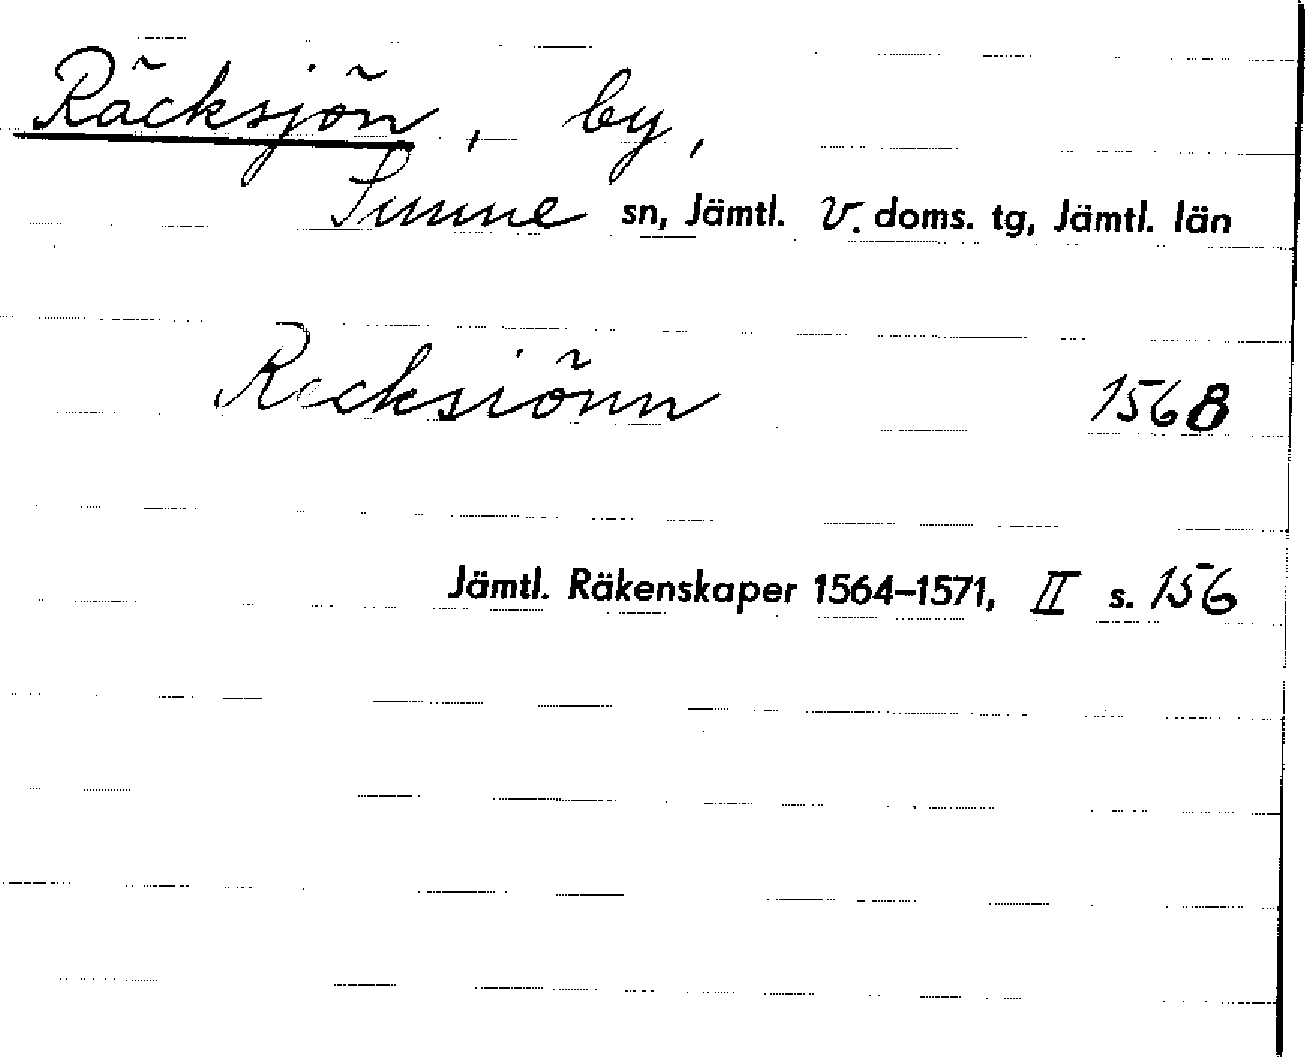 Räcksjön, by,
Sunne sn, Jämtl. V. doms. tg, Jämtl. län
Recksiönn 1568
Jämtl. Räkenskaper 1564–1571, II s. 156